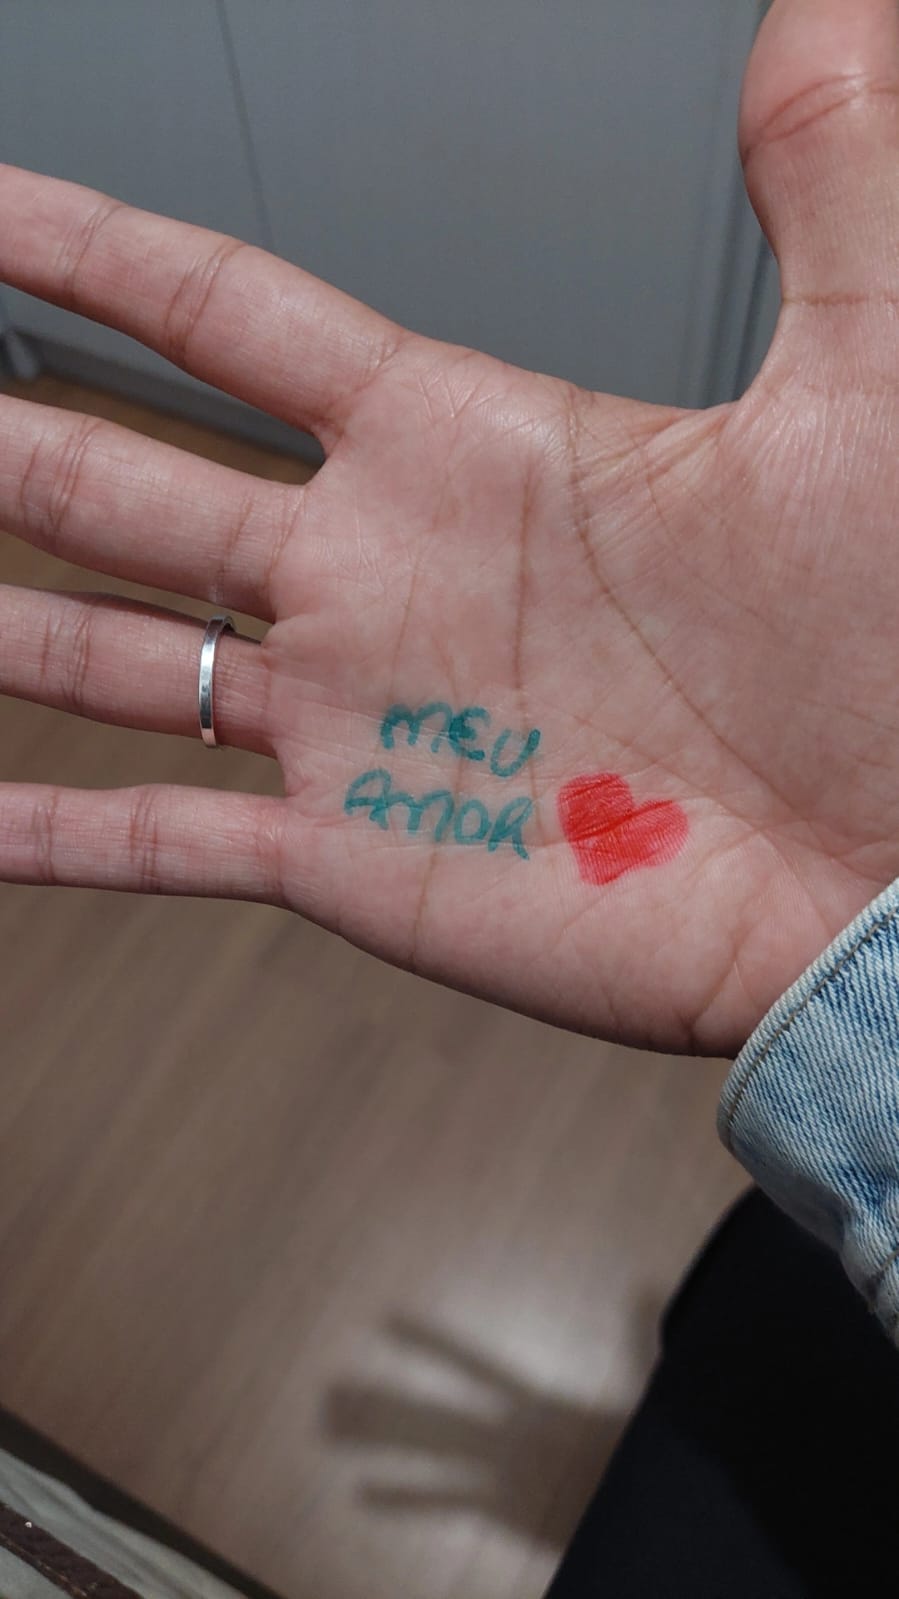 MEU
AMOR